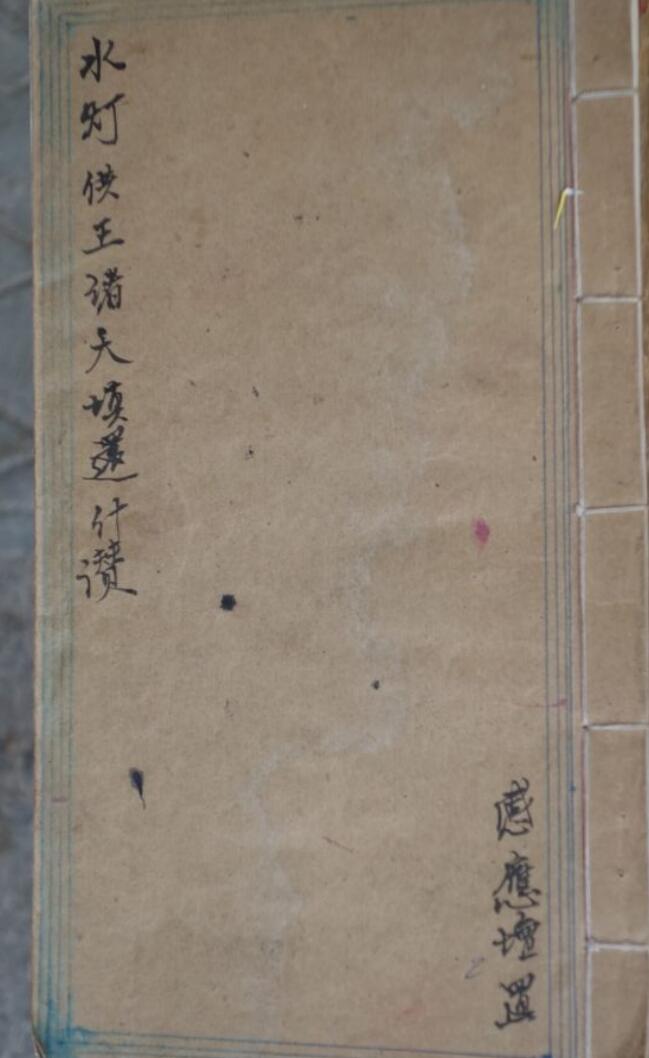 水灯供王诸天填还什讃
感應壇置